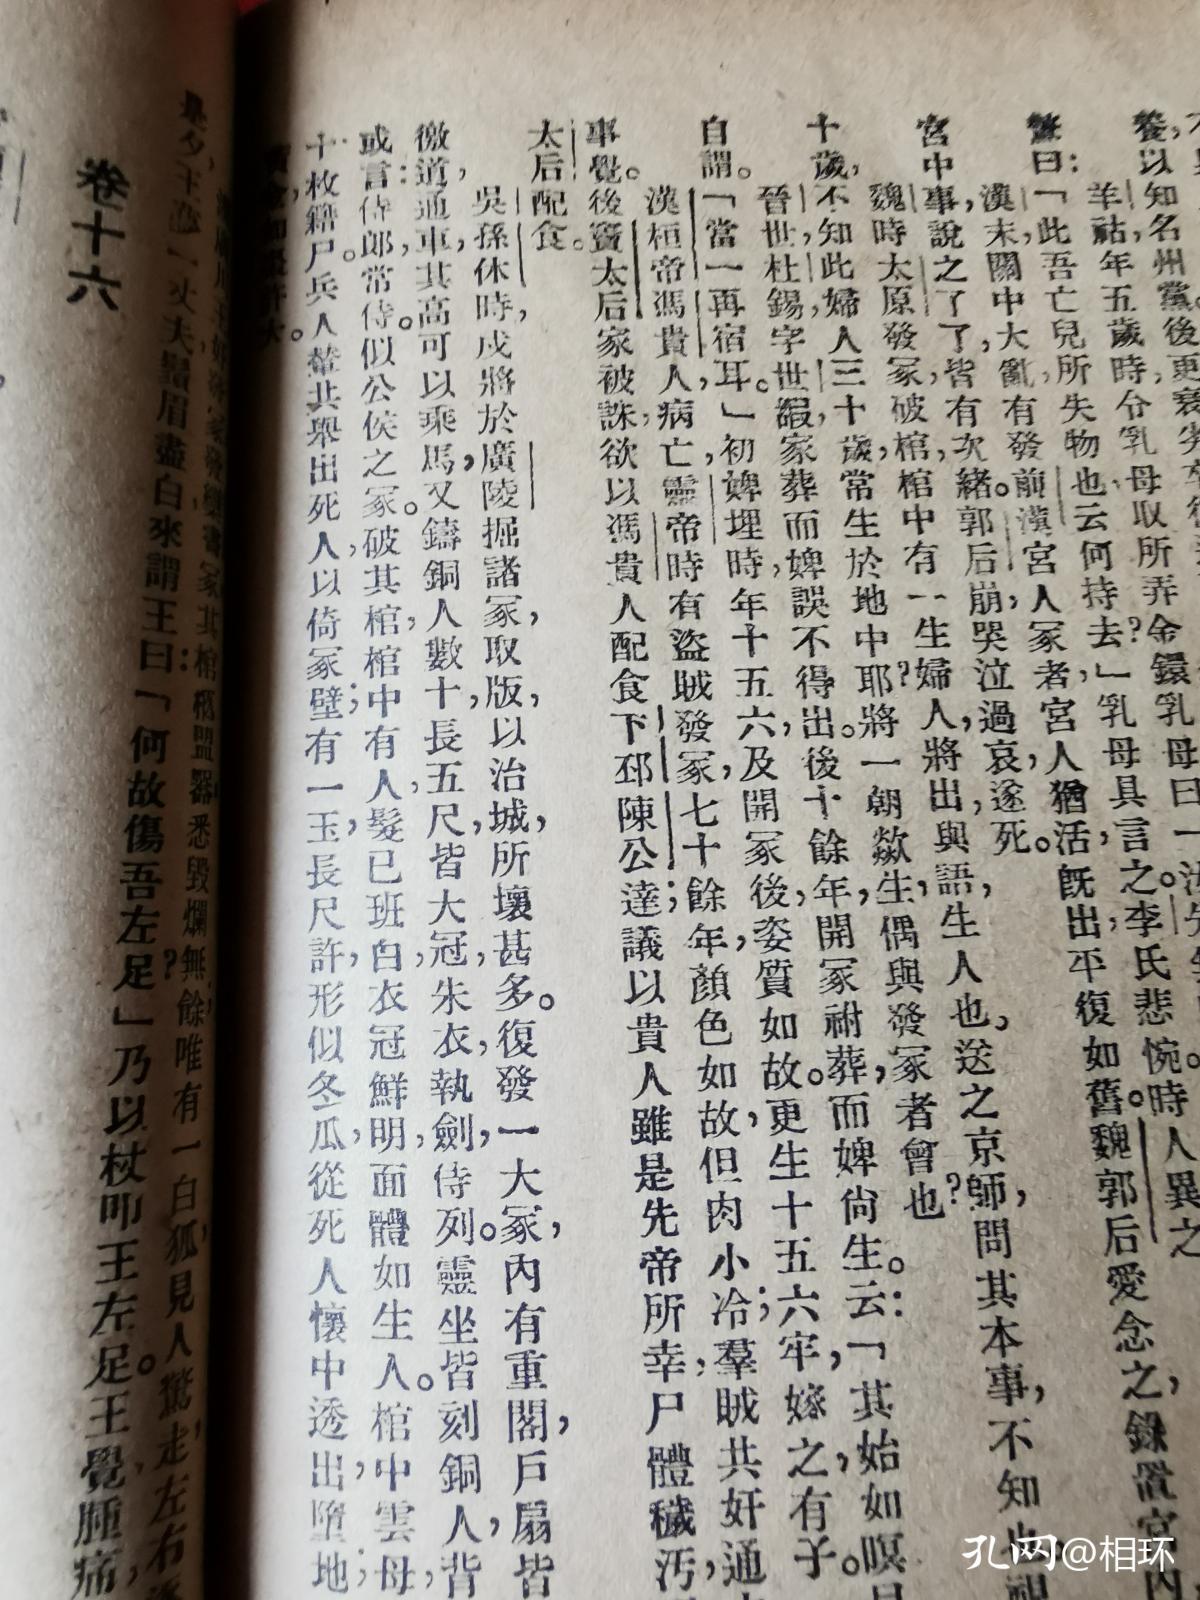 養以知名州黨後更衰劣
羊祜年五歲時令乳母取所弄金鐶乳母曰
鑒曰：「此吾亡兒所失物也云何持去？」乳母具言之。李氏悲惋。時人異之
漢末關中大亂有發前漢宮人冢者，宮人猶活旣出，平復如舊。魏郭后愛念之，錄置宮內
宮中事，說之了了，皆有次緒。郭后崩，哭泣過哀，遂死。
魏時太原發冢，破棺，棺中有一生婦人，將出與語，生人也，送之京師，問其本事，不知也
十歲，不知此婦人三十歲，常生於地中耶？將一朝歘生，偶與發冢者會也？
晉世，杜錫字世嘏，家葬而婢誤不得出。後十餘年，開冢祔葬，而婢尙生。云：「其始如瞑目
自謂。「當一再宿耳。」初，婢埋時，年十五六，及開冢後，姿質如故。更生十五六年，嫁之，有子。
漢桓帝馮貴人病亡，靈帝時有盜賊發冢，七十餘年，顏色如故，但肉小冷；羣賊共奸通
事覺。後竇太后家被誅，欲以馮貴人配食。下邳陳公達；議以貴人雖是先帝所幸，尸體穢汚，
太后配食。
吳孫休時，戍將於廣陵掘諸冢，取版，以治城，所壞甚多。復發一大冢，內有重閣，戶扇皆
徼道，通車，其高可以乘馬，又鑄銅人數十，長五尺，皆大冠，朱衣，執劍，侍列。靈坐皆刻銅人，背
或言：侍郎，常侍。似公侯之冢。破其棺，棺中有人，髮已班白，衣冠鮮明，面體如生人。棺中雲母，
十枚籍尸。兵人輦共舉出死人，以倚冢壁；有一玉，長尺許，形似冬瓜，從死人懷中透出，墮地；
冢其棺柩盟器悉毀爛無餘，唯有一白狐，見人驚走，左右
是夕，王夢一丈夫，鬚眉盡白，來謂王曰：「何故傷吾左足？」乃以杖叩王左足。王覺，腫痛，
卷十六